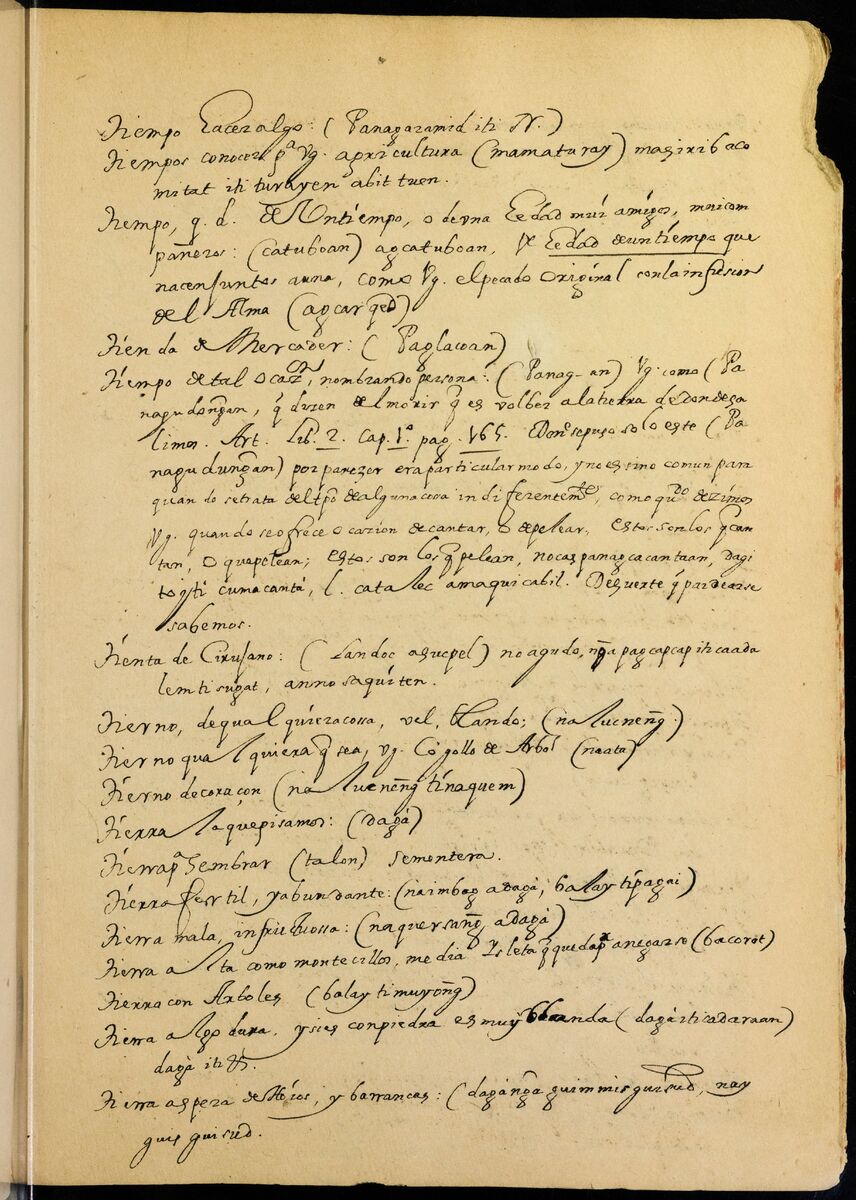 Tiempo hacer algo: (Panagaramid iti N.)
Tiempos conocer pᵃ Vg. agricultura (mamaturay) magiribaco
mitat iti turayen abit tuen.
Tiempo, q. d. de Un tiempo, o de vna Hedad mui amigos, mui com
pañeros: (catuboan) agcatuboan, Hedad de un tiempo que
nacen juntos auna, como Vg. el pecado original con la infusion
del Alma (agcarqed)
Tienda de Mercader: (Paglacoan)
Tiempo de tal ocazⁿ, nombrando persona: (Panag-an) Vg. como (Pa
nagudongan, q̃ dizen del morir q̃ es volber a la tierra de donde sa
limos. Art. Lib. 2. Cap. 1º pag. 165. Donᵉ se puso solo este (Pa
nagudungan) por parezer era particular modo, y no es sino comun para
quando se trata del tpõ de alguna cosa indiferentemᵗᵉ, como quᵈᵒ dezimos
Vg. quando se ofrece ocazion de cantar, o de pelear, estos son los q̃ can
tan, o que pelean; estos son los q̃ pelean, no cas panagcacantaan, dagi
toy ti cumanta, l. catalec amaquicabil. De suerte q̃ para dearse
sabemos.
Tienta de Cirujano: (Landoc asucpel) no agudo, nga pagcapcap iti caada
lem ti sugat, anno saquiten.
Tierno, de qual quiera cossa, vel, blando; (nalucneng̃.)
Tierno qual quiera q̃ sea, vg. Cogollo de Arbol (naata)
Tierno de coraçon (nalucneng̃ ti naquem)
Tierra la que pisamos: (dagà)
Tierra pᵃ Sembrar (talon) sementera.
Tierra fertil, y abundante: (naimbag a dagà, balay ti pagai)
Tierra mala, infructuossa: (naquersang̃ a dagà)
Tierra alta como montecillos, media Ysleta q̃ queda pʳ anegarse (bacorot)
Tierra con Arboles (balay ti muyong̃)
Tierra algo dura, y si es con piedra es muy blanda (dagà iti cadaraan)
dagà iti N.
Tierra aspera de Hoios, y barrancas: (dagàng̃a guimmisguisud, nay
guisguisud.